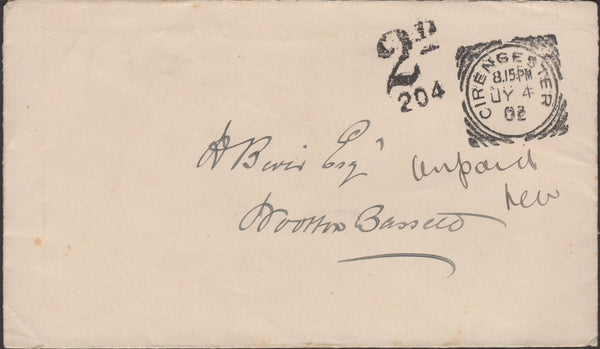 2D
204
CIRENCESTER
8.15 PM
JY 4
02
Esqr
Unpaid
Wootton Bassett